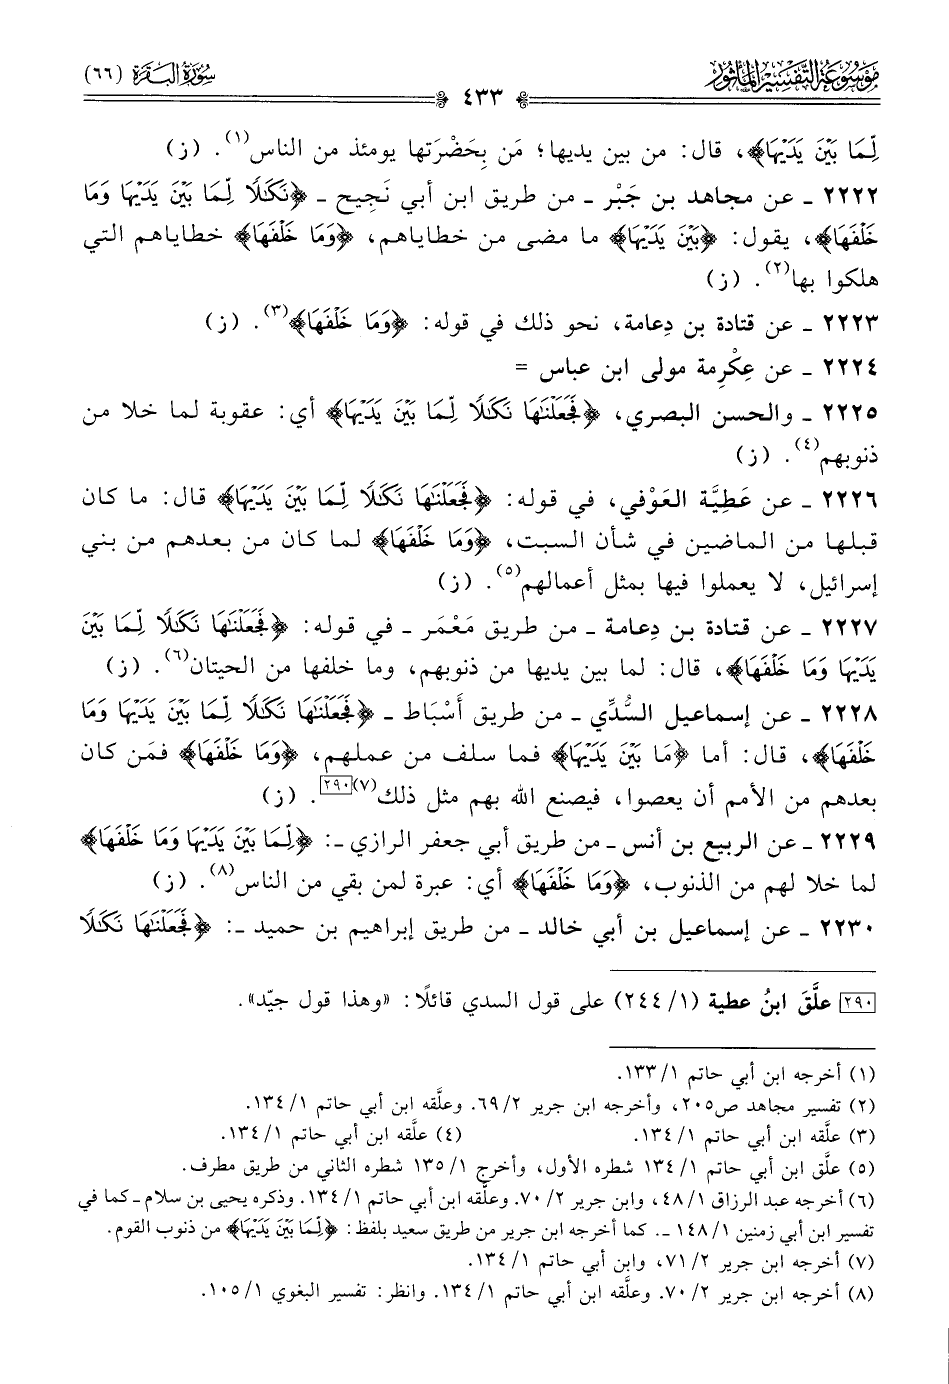 مَوْسُوعَة التَّفْسِير المَأثُور
سُورَةُ البَقَرَة (٦٦)
٤٣٣
لِّمَا بَيْنَ يَدَيْهَا﴾، قال: من بين يديها؛ مَن بِحَضْرَتها يومئذ من الناس(١). (ز)
٢٢٢٢ ـ عن مجاهد بن جَبْر ـ من طريق ابن أبي نَجِيح ـ ﴿نَكَٰلًا لِّمَا بَيْنَ يَدَيْهَا وَمَا
خَلْفَهَا﴾، يقول: ﴿بَيْنَ يَدَيْهَا﴾ ما مضى من خطاياهم، ﴿وَمَا خَلْفَهَا﴾ خطاياهم التي
هلكوا بها(٢). (ز)
٢٢٢٣ ـ عن قتادة بن دِعامة، نحو ذلك في قوله: ﴿وَمَا خَلْفَهَا﴾(٣). (ز)
٢٢٢٤ ـ عن عِكْرِمة مولى ابن عباس =
٢٢٢٥ ـ والحسن البصري، ﴿فَجَعَلْنَٰهَا نَكَٰلًا لِّمَا بَيْنَ يَدَيْهَا﴾ أي: عقوبة لما خلا من
ذنوبهم(٤). (ز)
٢٢٢٦ ـ عن عَطِيَّة العَوْفي، في قوله: ﴿فَجَعَلْنَٰهَا نَكَٰلًا لِّمَا بَيْنَ يَدَيْهَا﴾ قال: ما كان
قبلها من الماضين في شأن السبت، ﴿وَمَا خَلْفَهَا﴾ لما كان من بعدهم من بني
إسرائيل، لا يعملوا فيها بمثل أعمالهم(٥). (ز)
٢٢٢٧ ـ عن قتادة بن دِعامة ـ من طريق مَعْمَر ـ في قوله: ﴿فَجَعَلْنَٰهَا نَكَٰلًا لِّمَا بَيْنَ
يَدَيْهَا وَمَا خَلْفَهَا﴾، قال: لما بين يديها من ذنوبهم، وما خلفها من الحيتان(٦). (ز)
٢٢٢٨ ـ عن إسماعيل السُّدِّي ـ من طريق أَسْبَاط ـ ﴿فَجَعَلْنَٰهَا نَكَٰلًا لِّمَا بَيْنَ يَدَيْهَا وَمَا
خَلْفَهَا﴾، قال: أما ﴿مَا بَيْنَ يَدَيْهَا﴾ فما سلف من عملهم، ﴿وَمَا خَلْفَهَا﴾ فمَن كان
بعدهم من الأمم أن يعصوا، فيصنع الله بهم مثل ذلك(٧)[٢٩٠]. (ز)
٢٢٢٩ ـ عن الربيع بن أنس ـ من طريق أبي جعفر الرازي ـ: ﴿لِّمَا بَيْنَ يَدَيْهَا وَمَا خَلْفَهَا﴾
لما خلا لهم من الذنوب، ﴿وَمَا خَلْفَهَا﴾ أي: عبرة لمن بقي من الناس(٨). (ز)
٢٢٣٠ ـ عن إسماعيل بن أبي خالد ـ من طريق إبراهيم بن حميد ـ: ﴿فَجَعَلْنَٰهَا نَكَٰلًا
[٢٩٠] علَّقَ ابنُ عطية (١/ ٢٤٤) على قول السدي قائلًا: «وهذا قول جيّد».
(١) أخرجه ابن أبي حاتم ١/ ١٣٣.
(٢) تفسير مجاهد ص٢٠٥، وأخرجه ابن جرير ٢/ ٦٩. وعلَّقه ابن أبي حاتم ١/ ١٣٤.
(٣) علَّقه ابن أبي حاتم ١/ ١٣٤. (٤) علَّقه ابن أبي حاتم ١/ ١٣٤.
(٥) علَّق ابن أبي حاتم ١/ ١٣٤ شطره الأول، وأخرج ١/ ١٣٥ شطره الثاني من طريق مطرف.
(٦) أخرجه عبد الرزاق ١/ ٤٨، وابن جرير ٢/ ٧٠. وعلَّقه ابن أبي حاتم ١/ ١٣٤. وذكره يحيى بن سلام ـ كما في
تفسير ابن أبي زمنين ١/ ١٤٨ ـ. كما أخرجه ابن جرير من طريق سعيد بلفظ: ﴿لِّمَا بَيْنَ يَدَيْهَا﴾ من ذنوب القوم.
(٧) أخرجه ابن جرير ٢/ ٧١، وابن أبي حاتم ١/ ١٣٤.
(٨) أخرجه ابن جرير ٢/ ٧٠. وعلَّقه ابن أبي حاتم ١/ ١٣٤. وانظر: تفسير البغوي ١/ ١٠٥.